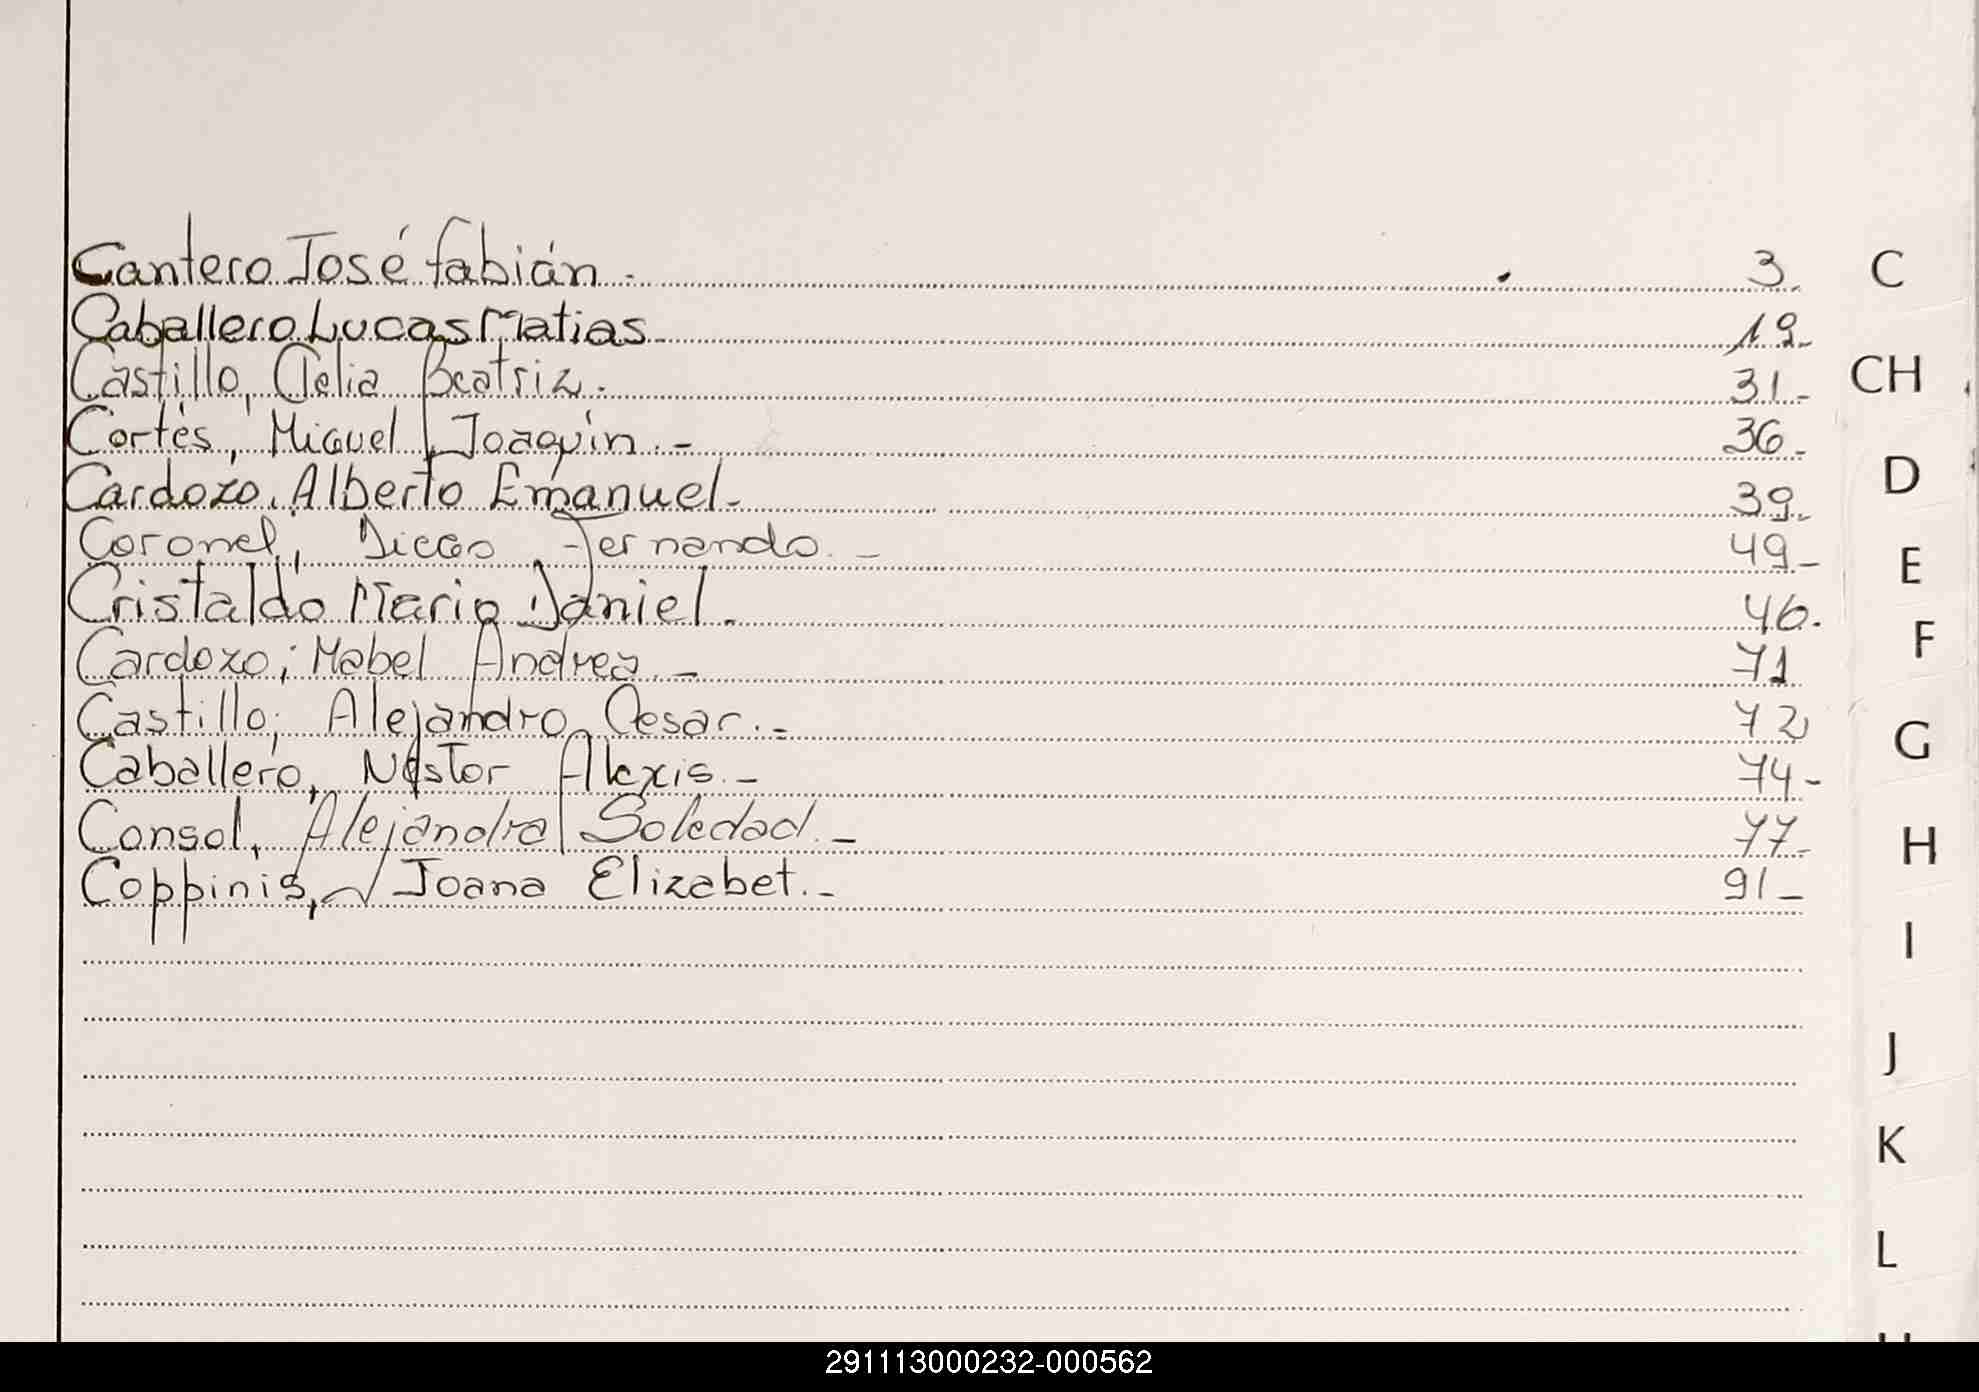 Cantero José fabián.- 3.
Caballero Lucas Matias 19.-
Castillo, Clelia Beatriz.- 31.-
Cortés, Miguel Joaquín.- 36.-
Cardozo, Alberto Emanuel.- 39.-
Coronel, Diego Fernando.- 49-
Cristaldo Mario Daniel. 46.
Cardozo; Mabel Andrea.- 71
Castillo; Alejandro Cesar.- 72
Caballero, Néstor Alexis.- 74-
Consol, Alejandra Soledad.- 77.-
Coppinis, Joana Elizabet.- 91-
C
CH
D
E
F
G
H
I
J
K
L
291113000232-000562